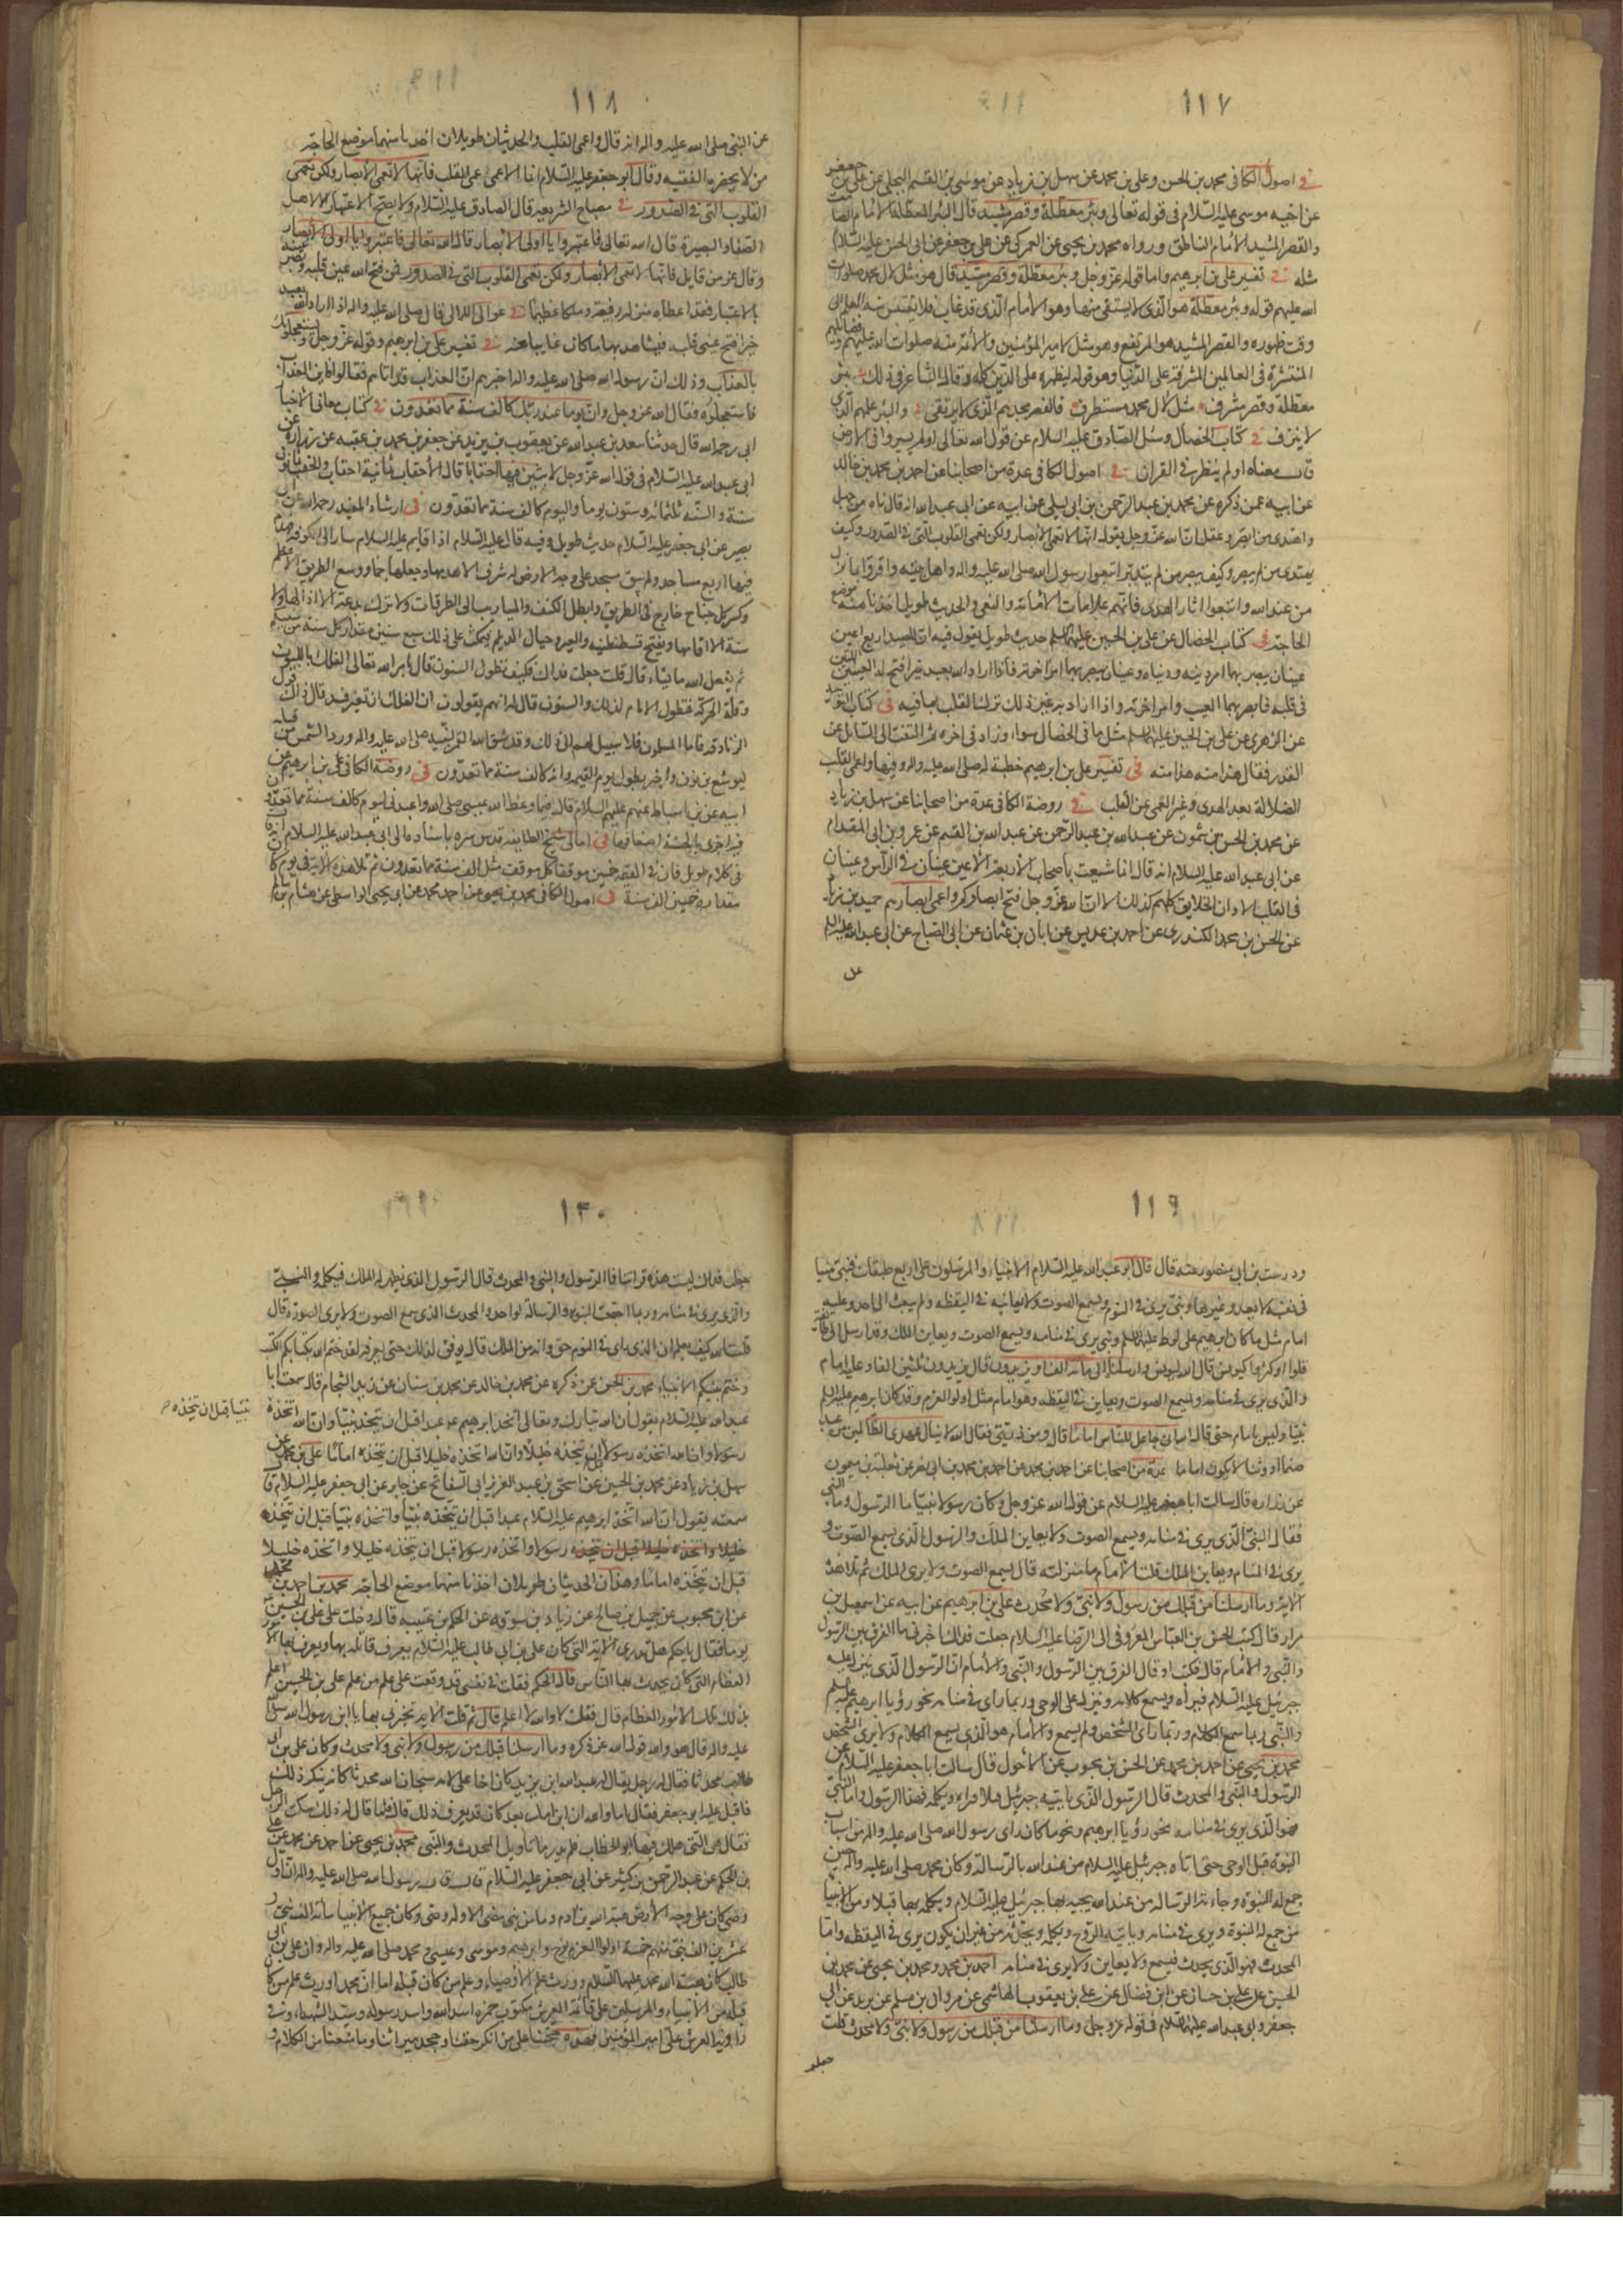 ١١٧
في اصول الكافى محمد بن الحسن وعلى بن محمد عن سهل بن زياد عن موسى بن القسم البجلى عن على بن جعفر
عن اخيه موسى عليه السلام فى قوله تعالى وبئر معطلة وقصر مشيد قال البئر المعطلة الامام الصامت
والقصر المشيد الامام الناطق ورواه محمد بن يحيى عن العمركى عن على بن جعفر عن ابى الحسن عليه السلام
مثله في تفسير على بن ابرهيم واما قوله عز وجل وبئر معطلة وقصر مشيد قال هو مثل لال محمد صلوات
الله عليهم قوله وبئر معطلة هو الذى لا يستقى منها وهو الامام الذى قد غاب فلا يقتبس منه العلم الى
وقت ظهوره والقصر المشيد هو المرتفع وهو مثل لامير المؤمنين والائمة منه صلوات الله عليهم وفضائلهم
المنتشرة فى العالمين المشرفة على الدنيا وهو قوله ليظهره على الدين كله وقال الشاعر فى ذلك بئر
معطلة وقصر مشرف مثل لال محمد مستطرف فالقصر مجدهم الذى لا يرتقى والبئر علمهم الذى
لا ينزف في كتاب الخصال وسئل الصادق عليه السلام عن قول الله تعالى اولم يسيروا فى الارض
ق ب معناه اولم ينظر في القران في اصول الكافى عدة من اصحابنا عن احمد بن محمد بن خالد
عن ابيه عمن ذكره عن محمد بن عبد الرحمن بن ابى ليلى عن ابيه عن ابى عبد الله انه قال تاه من جهل
واهتدى من ابصر وعقل ان الله عز وجل يقول انها لا تعمى الابصار ولكن تعمى القلوب التى في الصدور وكيف
يهتدى من لم يبصر وكيف يبصر من لم يتدبر اتبعوا رسول الله صلى الله عليه واله واهل بيته واقروا بما نزل
من عند الله واتبعوا اثار الهدى فانهم علامات الامانة والتقى والحديث طويل اخذنا منه موضع
الحاجة في كتاب الخصال عن على بن الحسين عليهما السلم حديث طويل يقول فيه ان للعبد اربع اعين
عينان يبصر بهما امر دينه ودنياه وعينان يبصر بهما امر اخرته فاذا اراد الله بعبد خيرا فتح له العينين اللتين
فى قلبه فابصر بهما العيب وامر اخرته واذا اراد به غير ذلك ترك القلب بما فيه في كتاب التوحيد
عن الزهرى عن على بن الحسين عليهما السلم مثل ما فى الخصال سواء وزاد فى اخره ثم التفت الى السائل عن
القدر فقال هذا منه هذا منه في تفسير على بن ابرهيم خطبة له صلى الله عليه واله وفيها واعمى القلب
الضلالة بعد الهدى وغير العمى عن القلب في روضة الكافى عدة من اصحابنا عن سهل بن زياد
عن محمد بن الحسن بن شمون عن عبد الله بن عبد الرحمن عن عبد الله بن القسم عن عمرو بن ابى المقدام
عن ابى عبد الله عليه السلام انه قال انما شيعتنا اصحاب الاربعة الاعين عينان في الراس وعينان
فى القلب الا وان الخلايق كلهم كذلك الا ان الله عز وجل فتح ابصاركم واعمى ابصارهم حميد بن زياد
عن الحسن بن محمد الكندى عن احمد بن عديس عن ابان بن عثمان عن ابى الصباح عن ابى عبد الله عليه السلم
عن
١١٨
عن النبى صلى الله عليه واله انه قال واعمى القلب والحديثان طويلان اخذنا منهما موضع الحاجة
من لا يحضره الفقيه وقال ابو جعفر عليه السلام انما الاعمى عمى القلب فانها لا تعمى الابصار ولكن تعمى
القلوب التى في الصدور في مصباح الشريعة قال الصادق عليه السلام ولا يصح الاعتبار الا لاهل
الصفاء والبصيرة قال الله تعالى فاعتبروا يا اولى الابصار قال الله تعالى فاعتبروا يا اولى الابصار
وقال عز من قايل فانها لا تعمى الابصار ولكن تعمى القلوب التى في الصدور فمن فتح الله عين قلبه وبصر عينه
بالاعتبار فقد اعطاه منزلة رفيعة وملكا عظيما في عوالى اللالى قال صلى الله عليه واله اذا اراد الله بعبد
خيرا فتح عينى قلبه فيشاهد بهما ما كان غايبا عنه في تفسير على بن ابرهيم وقوله عز وجل ويستعجلونك
بالعذاب وذلك ان رسول الله صلى الله عليه واله اخبرهم ان العذاب قد اتاهم فقالوا فاين العذاب
فاستعجلوه فقال الله عز وجل وان يوما عند ربك كالف سنة مما تعدون في كتاب معانى الاخبار
ابى رحمه الله قال حدثنا سعد بن عبد الله عن يعقوب بن يزيد عن جعفر بن محمد بن عقبه عمن رواه عن
ابى عبد الله عليه السلام فى قول الله عز وجل لابثين فيها احقابا قال الاحقاب ثمانية احقاب والحقب ثمانون
سنة والسنة ثلثمائه وستون يوما واليوم كالف سنة مما تعدون في ارشاد المفيد رحمه الله عن ابى
بصير عن ابى جعفر عليه السلام حديث طويل وفيه قال عليه السلام اذا قام القايم عليه السلام سار الى الكوفة فهدم
فيها اربع مساجد ولم يبق مسجد على وجه الارض له شرف الا هدمها وجعلها جما ووسع الطريق الاعظم
وكسر كل جناح خارج فى الطريق وابطل الكنف والميازيب الى الطرقات ولا يترك بدعة الا ازالها ولا
سنة الا اقامها ويفتح قسطنطنيه والصين وجبال الديلم فيمكث على ذلك سبع سنين مقدار كل سنة عشر سنين
ثم يفعل الله ما يشاء قال قلت جعلت فداك فكيف تطول السنون قال يامر الله تعالى الفلك باللبوث
وقلة الحركة فتطول الايام لذلك والسنون قال قلت له انهم يقولون ان الفلك ان تغير فسد قال ذلك قول
الزنادقه فاما المسلمون فلا سبيل لهم الى ذلك وقد شق الله القمر لنبيه صلى الله عليه واله ورد الشمس من قبله
ليوشع بن نون واخبر بطول يوم القيمة وانه كالف سنة مما تعدون في روضة الكافى على بن ابرهيم عن
ابيه عن بن اسباط عنهم عليهم السلام قال فيما وعظ الله عيسى صلى الله واعبدنى ليوم كالف سنة مما تعدون
فيه اجزى بالحسنة اضعافها في امالى شيخ الطائفة قدس سره باسناده الى ابى عبد الله عليه السلام انه قال
فى كلام طويل فان في القيمة خمسين موقفا كل موقف مثل الف سنة مما تعدون ثم تلا هذه الاية فى يوم كان
مقداره خمسين الف سنة في اصول الكافى محمد بن يحيى عن احمد بن محمد عن ابى يحيى الواسطى عن هشام بن سالم
١١٩
ودرست بن ابى منصور عنه قال قال ابو عبد الله عليه السلام الانبياء والمرسلون على اربع طبقات فنبى منبا
فى نفسه لا يعدو غيرها ونبى يرى في النوم ويسمع الصوت ولا يعاينه في اليقظه ولم يبعث الى احد وعليه
امام مثل ما كان ابرهيم على لوط عليهما السلم ونبى يرى في منامه ويسمع الصوت ويعاين الملك وقد ارسل الى طائفة
قلوا او كثروا كيونس قال الله ليونس وارسلناه الى مائة الف او يزيدون قال يزيدون ثلثين الفا وعليه امام
والذى يرى في منامه ويسمع الصوت ويعاين في اليقظه وهو امام مثل اولو العزم وقد كان ابرهيم عليه السلم
نبيا وليس بامام حتى قال الله انى جاعلك للناس اماما قال ومن ذريتى فقال الله لا ينال عهدى الظالمين من عبد
صنما او وثنا لا يكون اماما عدة من اصحابنا عن احمد بن محمد عن احمد بن محمد بن ابى نصر عن ثعلبة بن ميمون
عن زرارة قال سالت ابا جعفر عليه السلام عن قول الله عز وجل وكان رسولا نبيا ما الرسول وما النبى
فقال النبى الذى يرى في منامه ويسمع الصوت ولا يعاين الملك والرسول الذى يسمع الصوت و
يرى في المنام ويعاين الملك قلت الامام ما منزلته قال يسمع الصوت ولا يرى الملك ثم تلا هذه
الاية وما ارسلنا من قبلك من رسول ولا نبى ولا محدث على بن ابرهيم عن ابيه عن اسمعيل بن
مرار قال كتب الحسن بن العباس المعروفى الى الرضا عليه السلام جعلت فداك اخبرنى ما الفرق بين الرسول
والنبى والامام قال فكتب او قال الفرق بين الرسول والنبى والامام ان الرسول الذى ينزل عليه
جبرئيل عليه السلام فيراه ويسمع كلامه وينزل عليه الوحى وربما راى في منامه نحو رؤيا ابرهيم عليه السلم
والنبى ربما سمع الكلام وربما راى الشخص ولم يسمع والامام هو الذى يسمع الكلام ولا يرى الشخص
محمد بن يحيى عن احمد بن محمد عن الحسن بن محبوب عن الاحول قال سالت ابا جعفر عليه السلام عن
الرسول والنبى والمحدث قال الرسول الذى ياتيه جبرئيل قبلا فيراه ويكلمه فهذا الرسول واما النبى
فهو الذى يرى في منامه نحو رؤيا ابرهيم ونحو ما كان راى رسول الله صلى الله عليه واله من اسباب
النبوة قبل الوحى حتى اتاه جبرئيل عليه السلام من عند الله بالرسالة وكان محمد صلى الله عليه واله حين
جمع له النبوة وجاءته الرسالة من عند الله يجيئه بها جبرئيل عليه السلام ويكلمه بها قبلا ومن الانبياء
من جمع له النبوة ويرى في منامه وياتيه الروح ويكلمه ويحدثه من غير ان يكون يرى في اليقظه واما
المحدث فهو الذى يحدث فيسمع ولا يعاين ولا يرى في منامه احمد بن محمد ومحمد بن يحيى عن محمد بن
الحسين عن على بن حسان عن ابن فضال عن على بن يعقوب الهاشمى عن مروان بن مسلم عن بريد عن ابى
جعفر وابى عبد الله عليهما السلام فى قوله عز وجل وما ارسلنا من قبلك من رسول ولا نبى ولا محدث قلت
جعلت
١٢٠
جعلت فداك ليست هذه قرائتنا فما الرسول والنبى والمحدث قال الرسول الذى يظهر له الملك فيكلمه والنبى
والذى يرى في منامه وربما اجتمعت النبوة والرسالة لواحد والمحدث الذى يسمع الصوت ولا يرى الصورة قال
قلت اصلحك الله كيف يعلم ان الذى راى في النوم حق وانه من الملك قال يوفق لذلك حتى يعرفه لقد ختم الله بكتابكم الكتب
وختم بنبيكم الانبياء محمد بن الحسن عمن ذكره عن محمد بن خالد عن محمد بن سنان عن زيد الشحام قال سمعت ابا
عبد الله عليه السلام يقول ان الله تبارك وتعالى اتخذ ابرهيم عبدا قبل ان يتخذه نبيا وان الله اتخذه
نبيا قبل ان يتخذه
رسولا وان الله اتخذه رسولا قبل ان يتخذه خليلا وان الله اتخذه خليلا قبل ان يتخذه اماما على بن محمد عن
سهل بن زياد عن محمد بن الحسين عن اسحق بن عبد العزيز ابى السفاتج عن جابر عن ابى جعفر عليه السلام ق
سمعته يقول ان الله اتخذ ابرهيم عليه السلام عبدا قبل ان يتخذه نبيا واتخذه نبيا قبل ان يتخذه
خليلا واتخذه خليلا قبل ان يتخذه رسولا واتخذه رسولا قبل ان يتخذه خليلا واتخذه خليلا
قبل ان يتخذه اماما وهذان الحديثان طويلان اخذنا منهما موضع الحاجة محمد بن احمد بن يحيى
عن ابن محبوب عن جميل بن صالح عن زياد بن سوقه عن الحكم بن عتيبه قال دخلت على على بن الحسين
يوما فقال يا حكم هل تدرى الاية التى كان على بن ابى طالب عليه السلام يعرف قاتله بها ويعرف بها الامور
العظام التى كان يحدث بها الناس قال الحكم فقلت في نفسى قد وقعت على علم من علم على بن الحسين اعلم
بذلك تلك الامور العظام قال فقلت لا والله لا اعلم قال ثم قلت الاية تخبرنى بها يا ابن رسول الله صلى الله
عليه واله قال هو والله قول الله عز ذكره وما ارسلنا قبلك من رسول ولا نبى ولا محدث وكان على بن ابى
طالب محدثا فقال له رجل يقال له عبد الله بن زيد كان اخا على لامه سبحان الله محدثا كانه ينكر ذلك
فاقبل عليه ابو جعفر فقال اما والله ان ابن امك بعد كان قد يعرف ذلك قال فلما قال له ذلك سكت الرجل
فقال هى التى هلك فيها ابو الخطاب فلم يدر ما تاويل المحدث والنبى محمد بن يحيى عن احمد عن محمد عن على
بن الحكم عن عبد الرحمن بن كثير عن ابى جعفر عليه السلام ق ب ق ب رسول الله صلى الله عليه واله ان اول
وصى كان على وجه الارض هبة الله بن ادم وما من نبى مضى الا وله وصى وكان جميع الانبياء مائة الف نبى و
عشرين الف نبى منهم خمسة اولوا العزم نوح وابرهيم وموسى وعيسى ومحمد صلى الله عليه واله وان على بن ابى
طالب كان هبة الله لمحمد عليهما السلام وورث علم الاوصياء وعلم من كان قبله اما ان محمدا ورث علم من كان
قبله من الانبياء والمرسلين على قائمة العرش مكتوب حمزه اسد الله واسد رسوله وسيد الشهداء وفي
ذوابة العرش على امير المؤمنين فهذه حجتنا على من انكر حقنا وجحد ميراثنا وما منعنا من الكلام و